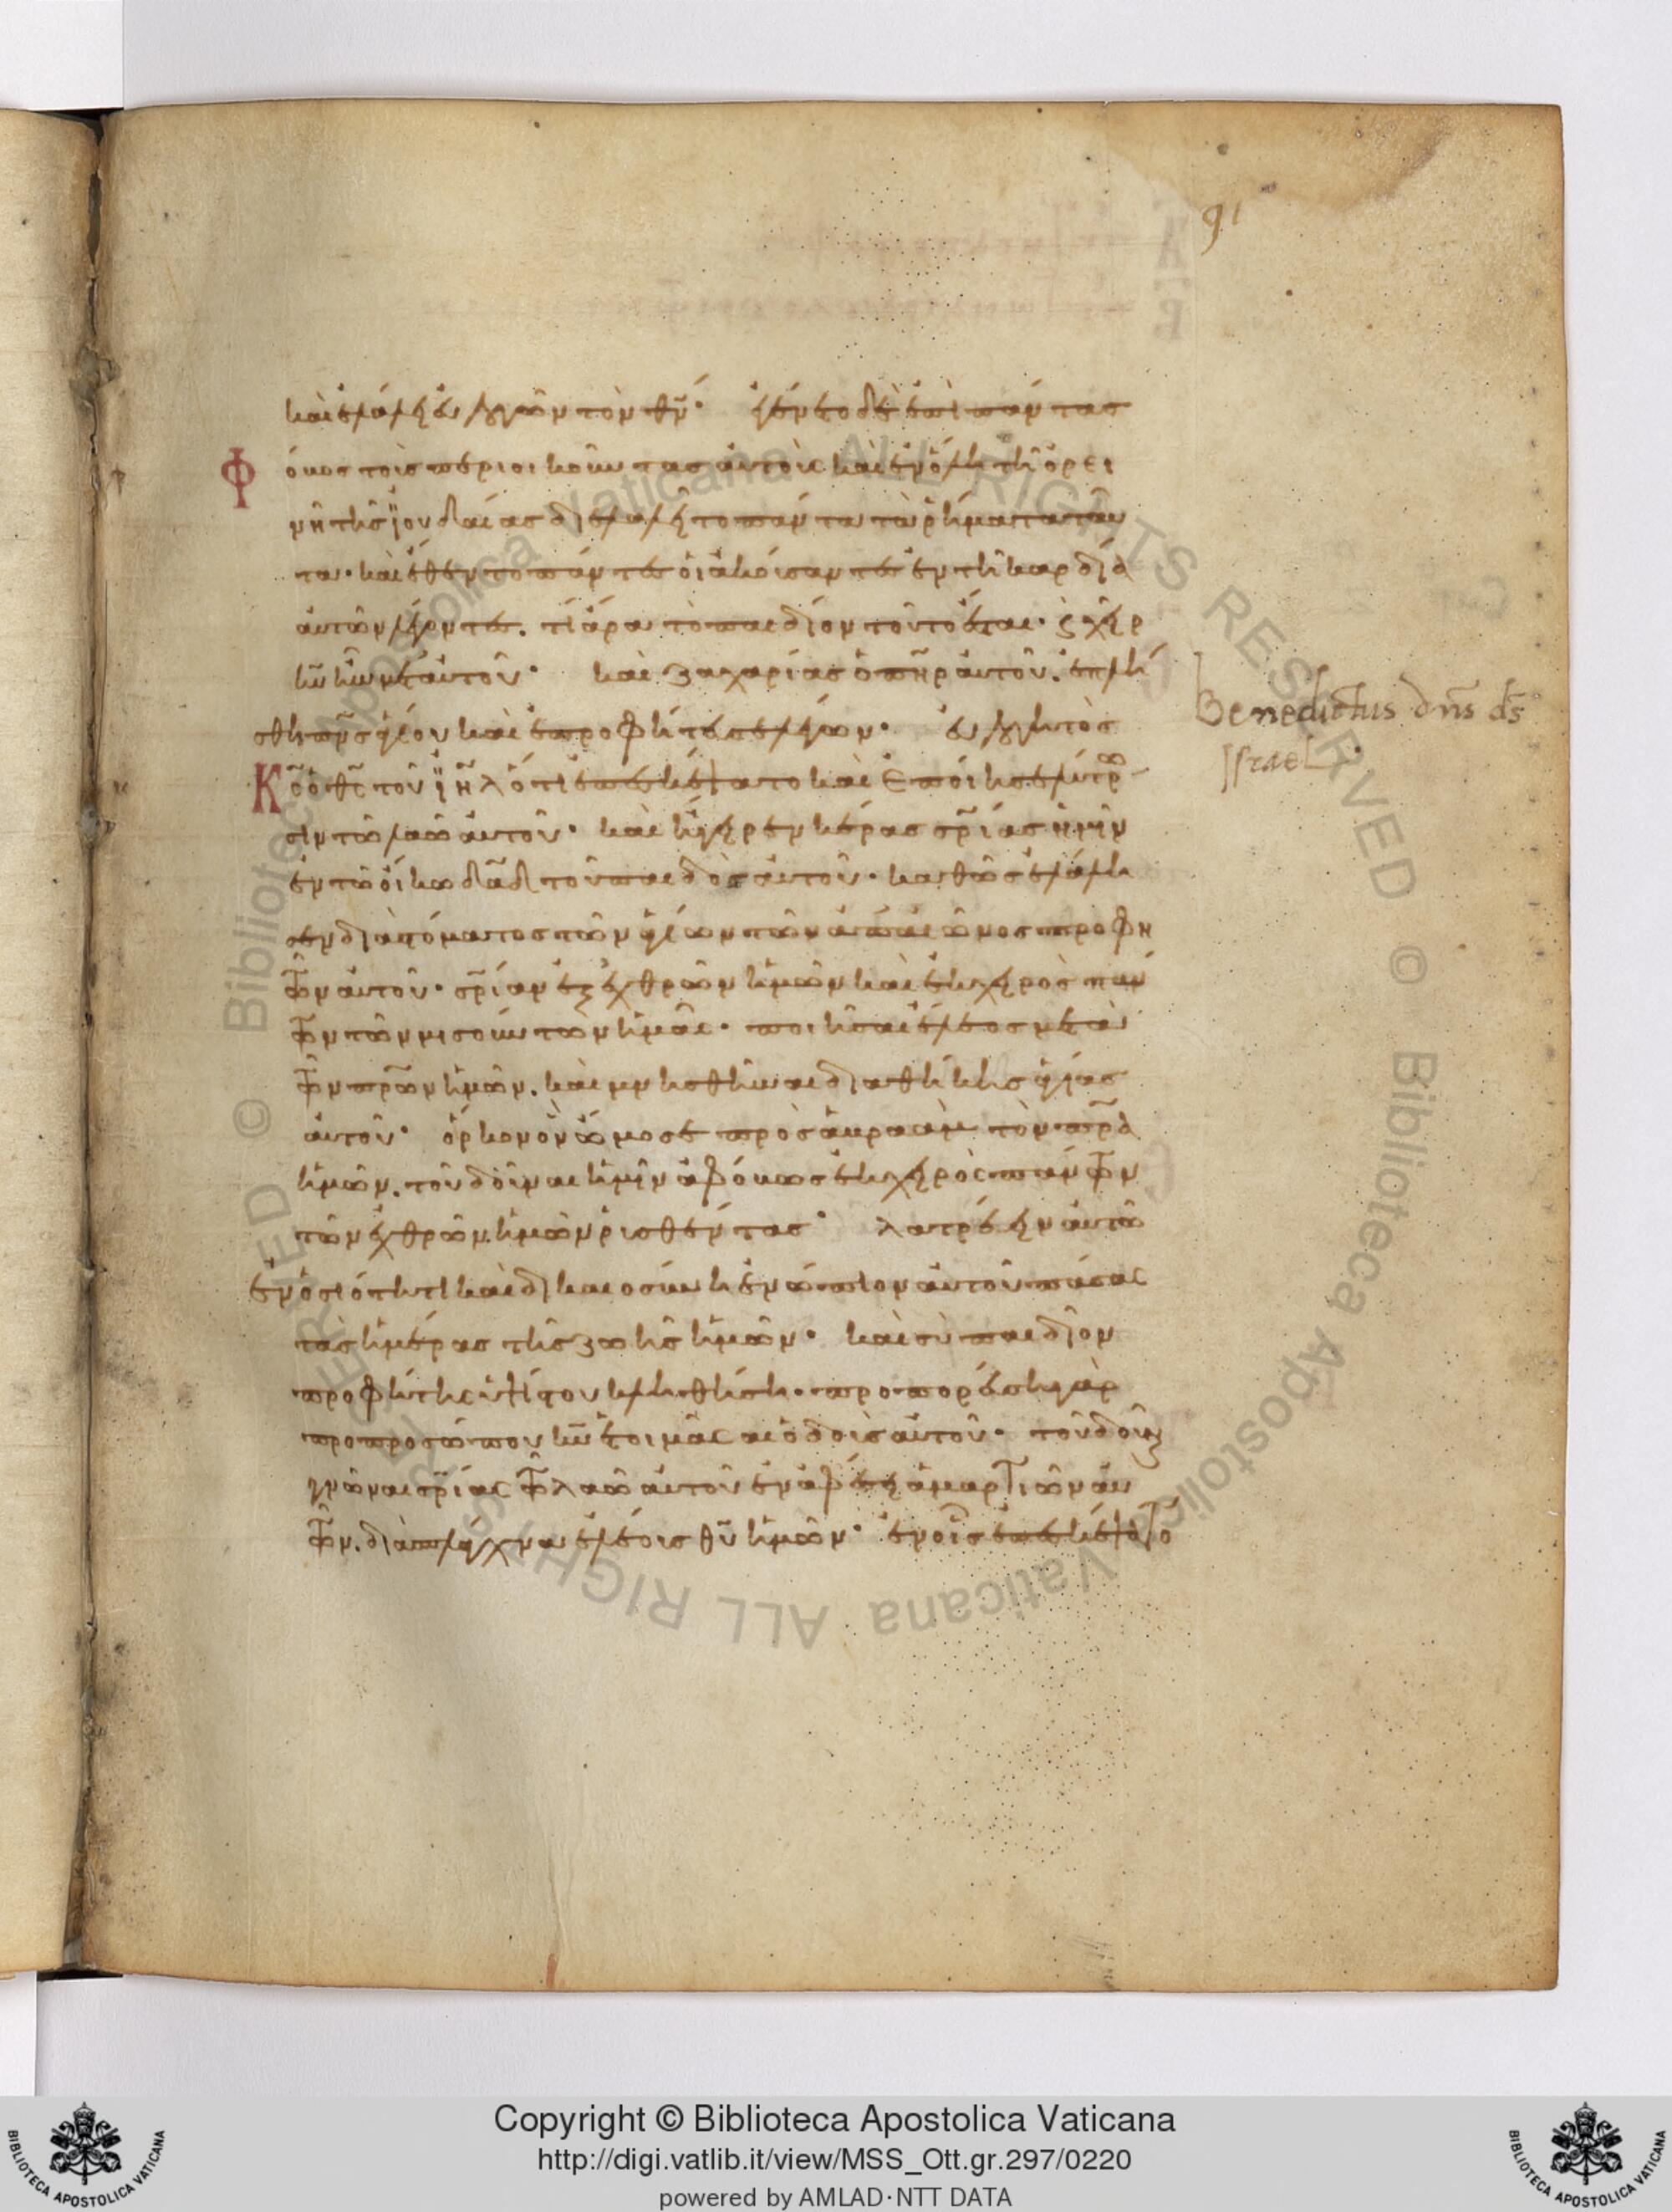 91
καὶ ἐλάλει εὐλογῶν τὸν θν̄· ἐγένετο δὲ ἐπὶ πάντας
φόβος τοὺς περιοικοῦντας αὐτοὺς καὶ ἐν ὅλη τῆ ὀρει
νῆ τῆς ἰουδαίας διελαλεῖτο πάντα τὰ ῥήματα ταῦ
τα· καὶ ἔθεντο πάντες οἱ ἀκούσαντες ἐν τῆ καρδίᾳ
αὐτῶν λέγοντες. τί ἄρα τὸ παιδίον τοῦτο ἔσται· ϛ χεὶρ
κῡ ἦν μετ αὐτοῦ· καὶ ζαχαρίας ὁ πη̄ρ αὐτοῦ. ἐπλή
σθη πν̄ς ἁγίου καὶ ἐπροφήτευσε λέγων· εὐλογητὸς
κ̄ς ὁ θ̄ς τοῦ ιη̄λ ὅτι ἐπεσκέψατο καὶ ἐποίησε λύτρω
σιν τῶ λαῶ αὐτοῦ· καὶ ἤγειρεν κέρας σρ̄ίας ἡμῖν
ἐν τῶ οἴκω δᾱδ τοῦ παιδὸς αὐτοῦ· καθὼς ἐλάλη
σεν διὰ στόματος τῶν ἁγίων τῶν ἀπ αἰῶνος προφη
τῶν αὐτοῦ· σρ̄ίαν ἐξ ἐχθρῶν ἡμῶν καὶ ἐκ χειρὸς πάν
των τῶν μισούντων ἡμᾶς· ποιῆσαι ἔλεος μετὰ
τῶν πρ̄ων ἡμῶν. καὶ μνησθῆναι διαθήκης ἁγίας
αὐτοῦ· ὅρκον ὃν ὤμοσε πρὸς ἀβραὰμ τὸν πρ̄α
ἡμῶν. τοῦ δοῦναι ἡμῖν ἀφόβως ἐκ χειρὸς πάντων
τῶν ἐχθρῶν ἡμῶν ῥυσθέντας· λατρεύειν αὐτῶ
ἐν ὁσιότητι καὶ δικαιοσύνη ἐνώπιον αὐτοῦ πάσας
τὰς ἡμέρας τῆς ζωῆς ἡμῶν· καὶ σὺ παιδίον
προφήτης ὑψίστου κληθήση. προπορεύση γὰρ
πρὸ προσώπου κῡ ἑτοιμάσαι ὁδοὺς αὐτοῦ· τοῦ δοῦναι
γνῶσιν σρ̄ίας τῶ λαῶ αὐτοῦ ἐν ἀφέσει ἁμαρτιῶν αὐ
τῶν. διὰ σπλάγχνα ἐλέους θῡ ἡμῶν· ἐν οἷς ἐπεσκέψατο
Benedictus dn̄s ds̄
Israel.
© Biblioteca Apostolica Vaticana ALL RIGHTS RESERVED © Biblioteca Apostolica Vaticana ALL RIGHTS RESERVED
BIBLIOTECA APOSTOLICA VATICANA
Copyright © Biblioteca Apostolica Vaticana
http://digi.vatlib.it/view/MSS_Ott.gr.297/0220
powered by AMLAD·NTT DATA
BIBLIOTECA APOSTOLICA VATICANA